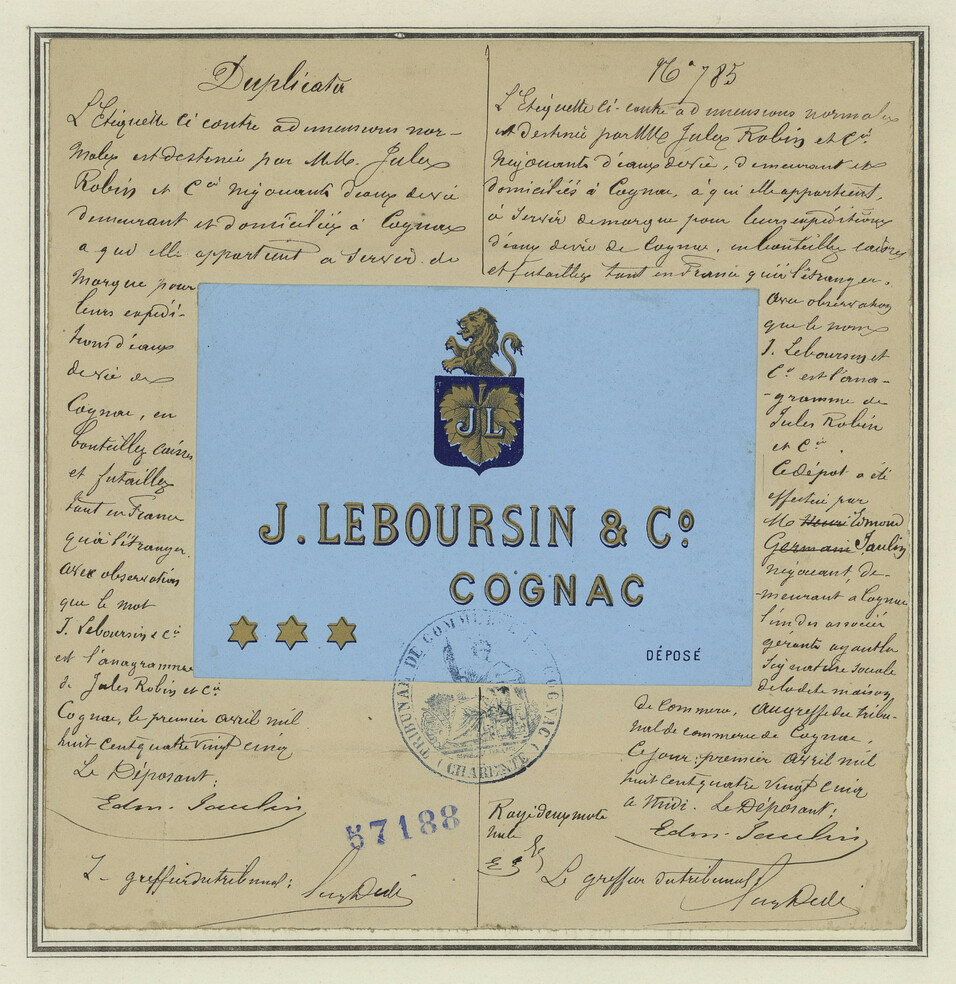 Duplicata
L'Etiquette ci contre ad mensions nor-
males est destinée par M.M. Jules
Robin et Cie négociants d'eaux de vie
demeurant et domiciliés à Cognac
a qui elle appartient a servir de
marque pour
leurs expédi-
tions d'eaux
de vie de
Cognac, en
bouteilles caisses
et futailles
tant en France
qu'à l'étranger.
avec observation
que le mot
J. Leboursin & Cie
est l'anagramme
de Jules Robin et Cie
Cognac, le premier avril mil
huit cent quatre vingt cinq
Le Déposant:
Edm. Jaulin
Le greffier du tribunal:
57188
No 785
L'Etiquette ci-contre ad mensions normales
est destinée par MM Jules Robin et Cie
Négociants d'eaux de vie, demeurant et
domiciliés à Cognac, à qui elle appartient,
à servir de marque pour leurs expéditions
d'eaux de vie de Cognac, en bouteilles caisses
et futailles tant en France qu'à l'étranger.
avec observation
que le nom
J. Leboursin et
Cie est l'ana-
-gramme de
Jules Robin
et Cie.
Ce dépot a été
effectué par
Mr Henri Edmond
Germain Jaulin
négociant, de-
-meurant à Cognac
l'un des associés
gérants ayant la
signature sociale
de la dite maison
de commerce, au greffe du tribu-
nal de commerce de Cognac,
ce jour: premier avril mil
huit cent quatre vingt cinq
a midi. Le Déposant:
Edm. Jaulin
Rayé deux mots
nuls
Le greffier du tribunal
JL
J. LEBOURSIN & Co
COGNAC
DÉPOSÉ
TRIBUNAL DE COMMERCE COGNAC
(CHARENTE)